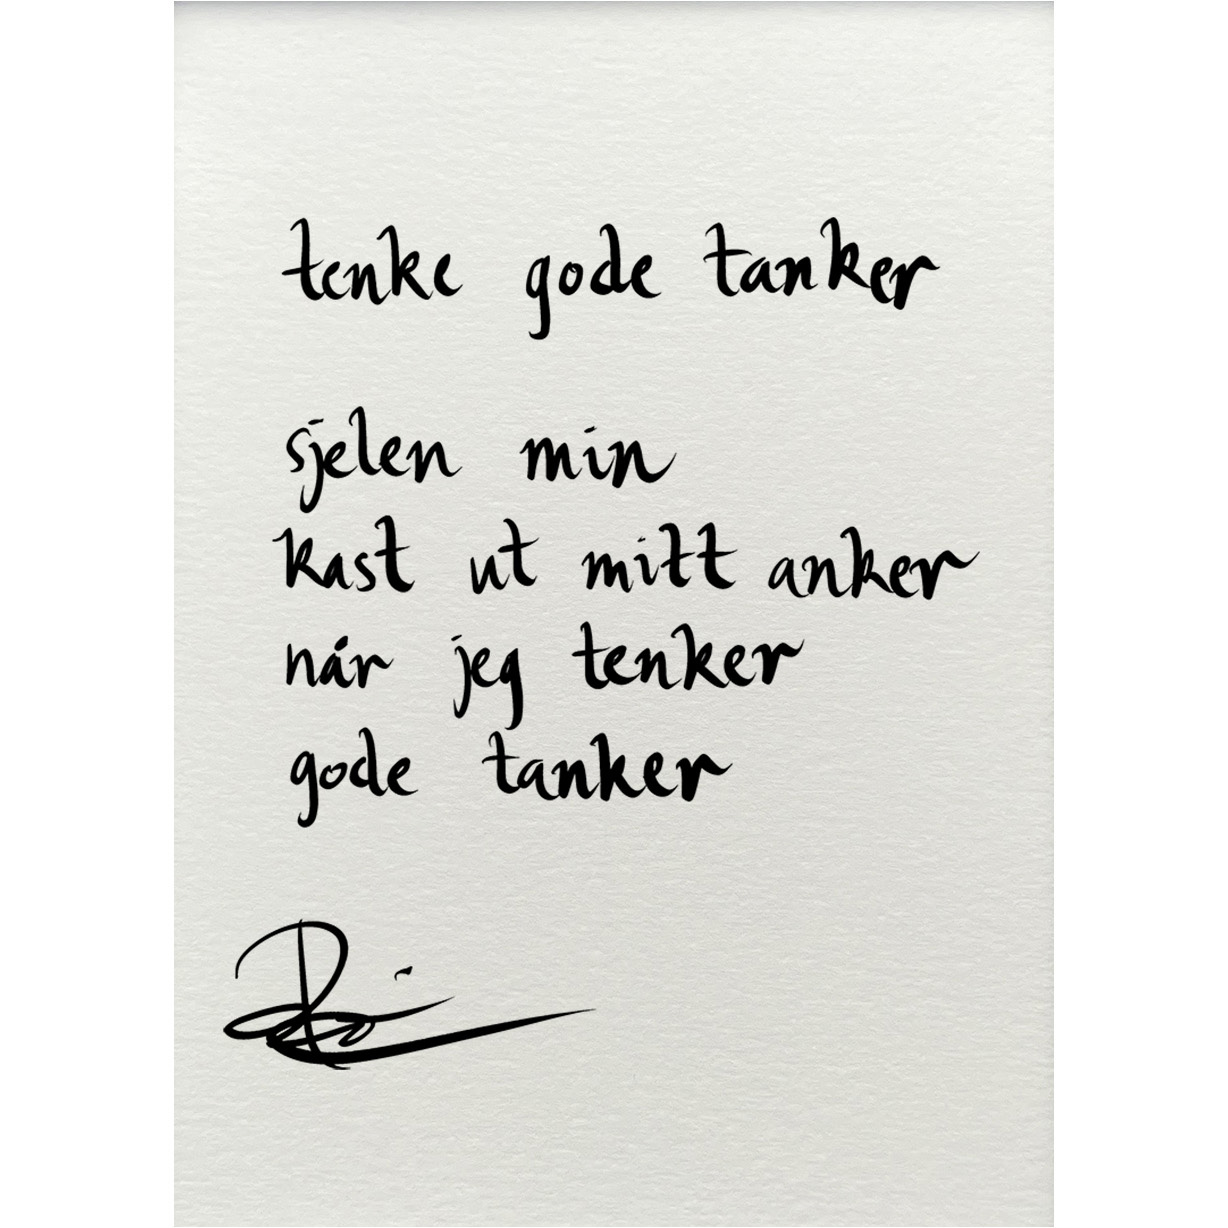 tenke gode tanker
sjelen min
kast ut mitt anker
når jeg tenker
gode tanker